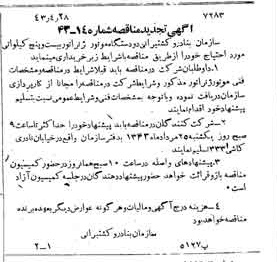 ۷۲۸۳ ۴۳ر۴ر۲۸
آگهی تجدید مناقصه شماره ۱۴-۴۳
سازمان بنادر و کشتیرانی دو دستگاه موتور ژنراتور بیست و پنج کیلو واتی
مورد احتیاج خود را از طریق مناقصه با شرایط زیر خریداری مینماید
۱ـ داوطلبان شرکت در مناقصه باید قبلا شرایط مناقصه و مشخصات
فنی موتور ژنراتور مذکور و شرایط شرکت در مناقصه را مجانا از کارپردازی
سازمان دریافت نموده و با توجه بمشخصات فنی و شرایط عمومی نسبت بتسلیم
پیشنهاد خود اقدام نمایند
۲ـ شرکت کنندگان در مناقصه باید پیشنهاد خود را حداکثر تا ساعت ۹
صبح روز یکشنبه ۲۵ مرداد ماه ۱۳۴۳ بدفتر سازمان واقع در خیابان نادری
کاشی ۳۳۳ تسلیم نمایند
۳ـ پیشنهادهای واصله در ساعت ۱۰ صبح همان روز در حضور کمیسیون
مناقصه باز و قرائت خواهد حضور پیشنهاد دهندگان در جلسه کمیسیون آزاد
است
۴ـ هزینه درج آگهی و مالیات و هر گونه عوارض دیگر بعهده برنده
مناقصه خواهد بود
سازمان بنادر و کشتیرانی
پ ۵۱۲۷ ۲-۱